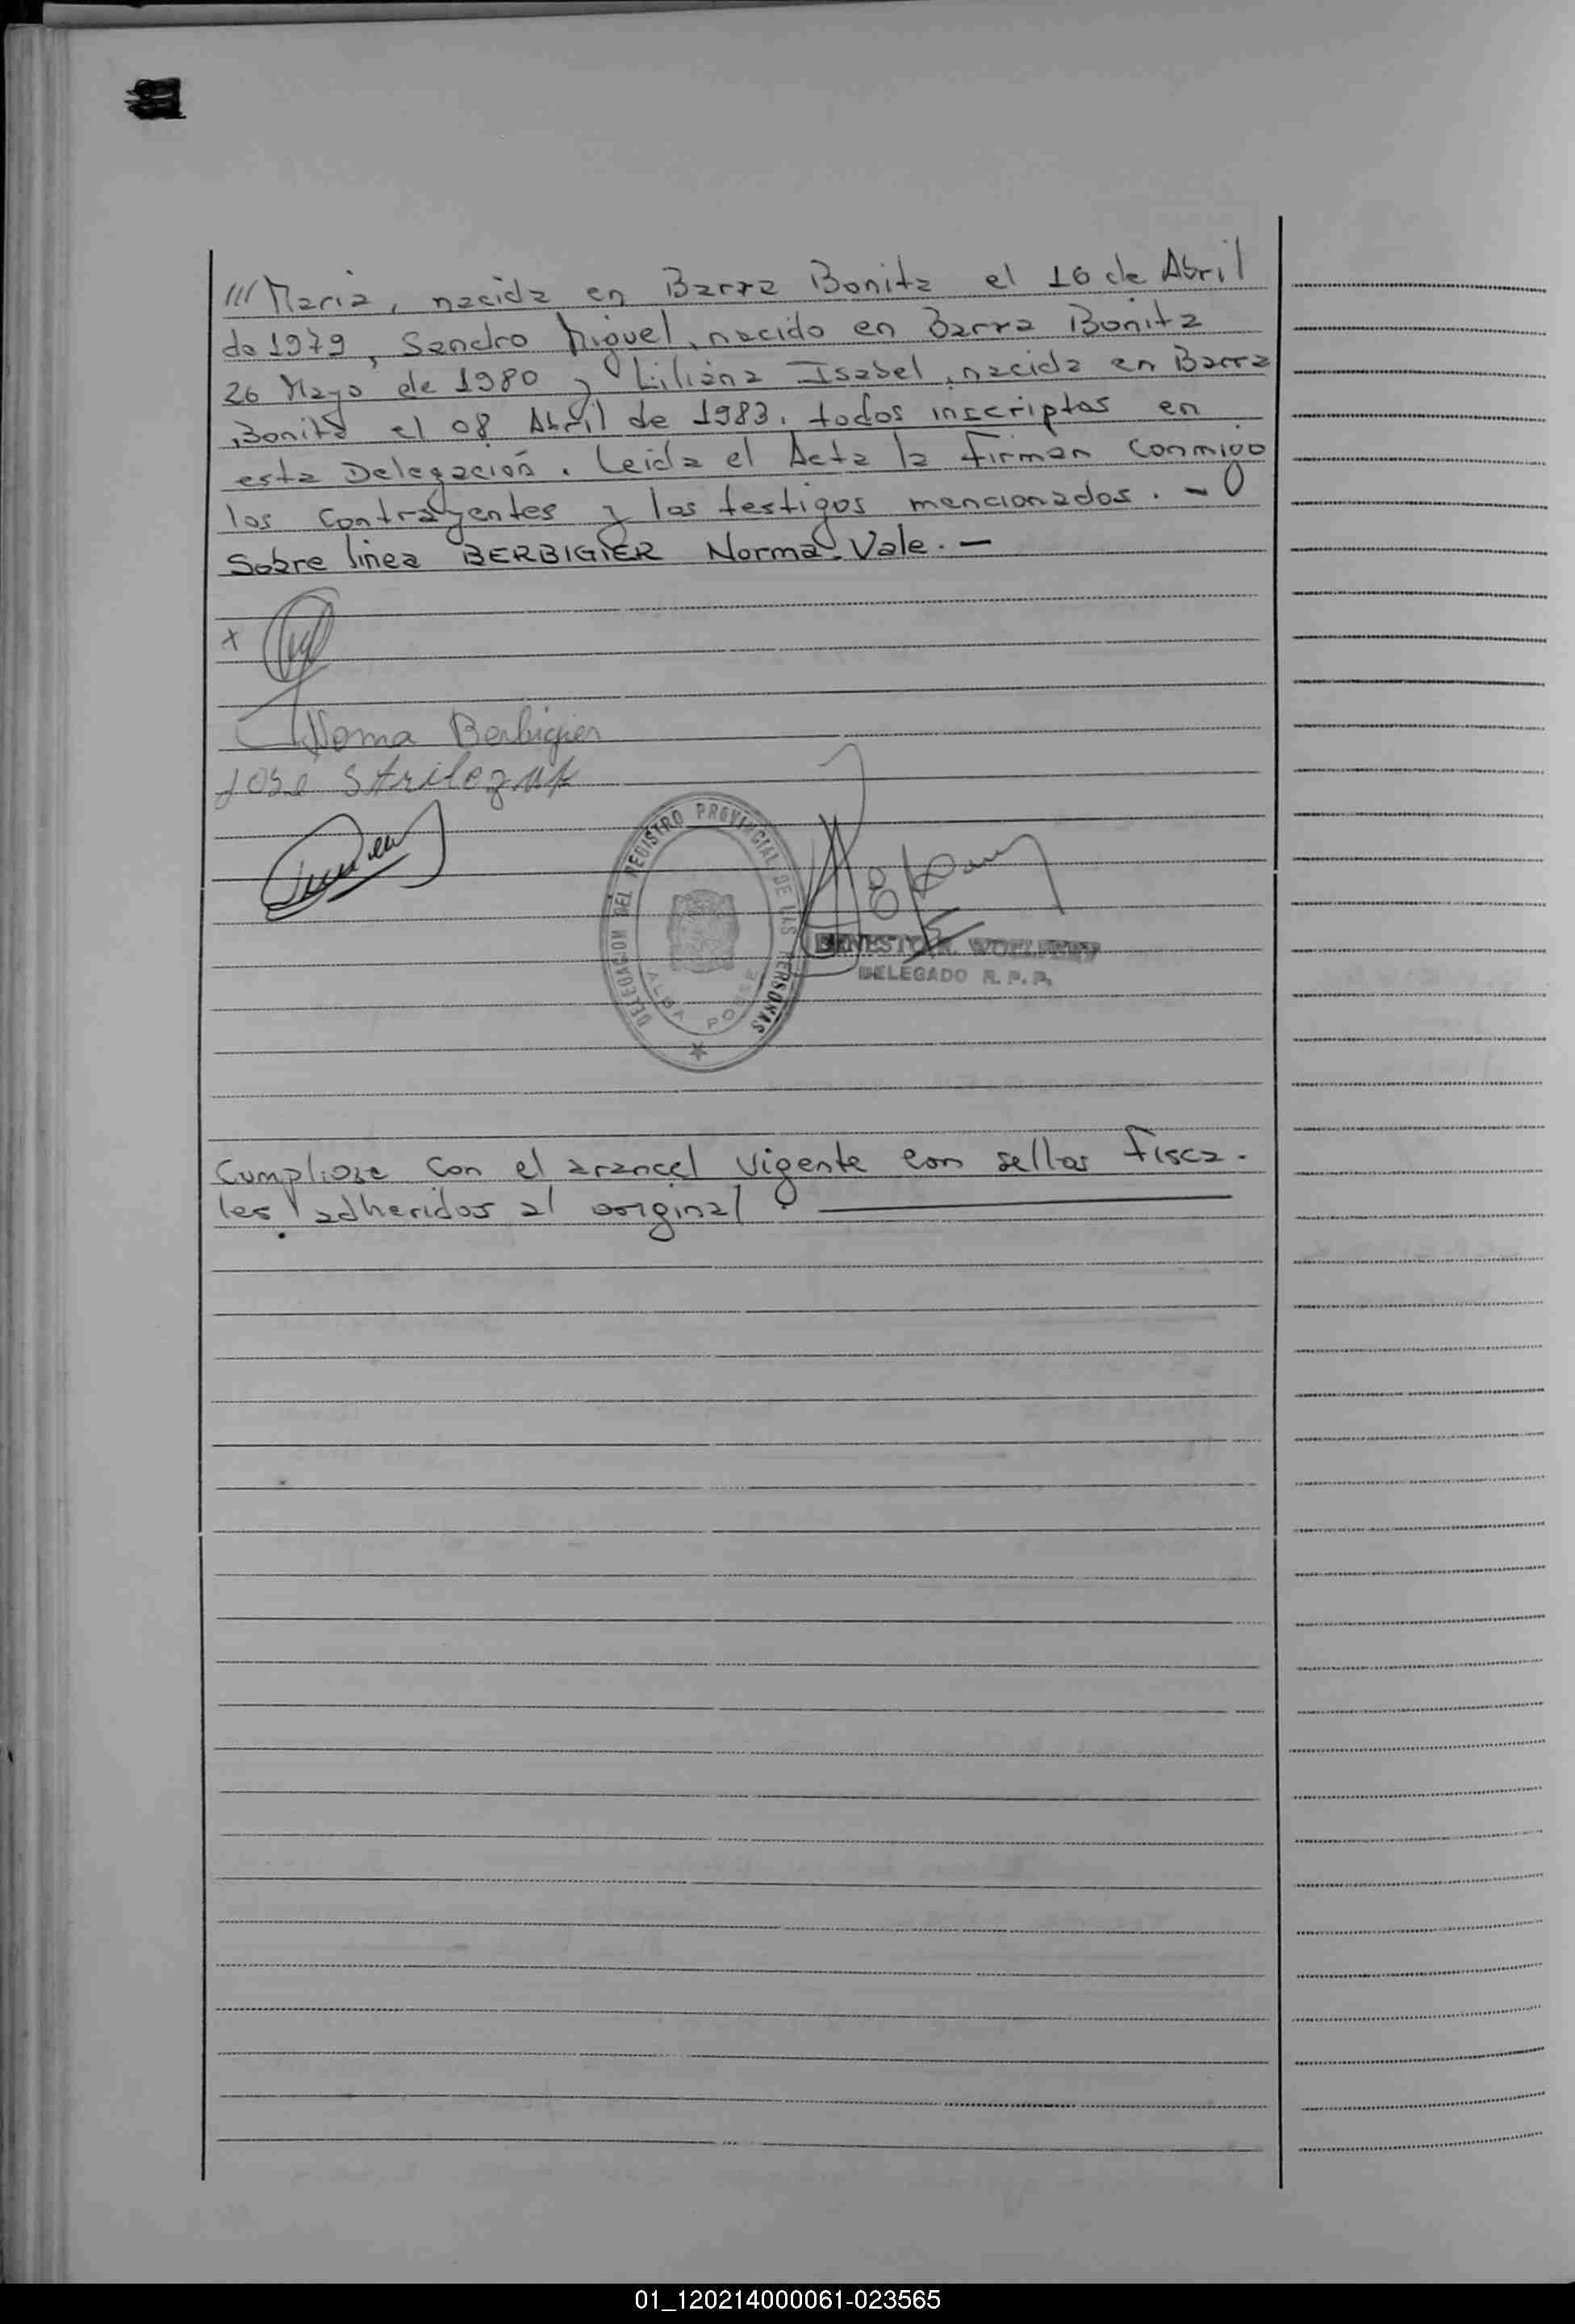 /// Maria, nacida en Barra Bonita el 16 de Abril
de 1979, Sandro Miguel, nacido en Barra Bonita
26 Mayo de 1980 y Liliana Isabel, nacida en Barra
Bonita el 08 Abril de 1983, todos inscriptos en
esta Delegación. Leida el Acta la firman conmigo
los contrayentes y los testigos mencionados. -
Sobre linea BERBIGIER Norma. Vale. -
x
Norma Berbigier
José Strilezuk
DELEGACION DEL REGISTRO PROVINCIAL DE LAS PERSONAS
ALBA POSSE
ERNESTO
DELEGADO R. P. P.
Cumpliose con el arancel vigente con sellos fisca-
les adheridos al original.
01_120214000061-023565